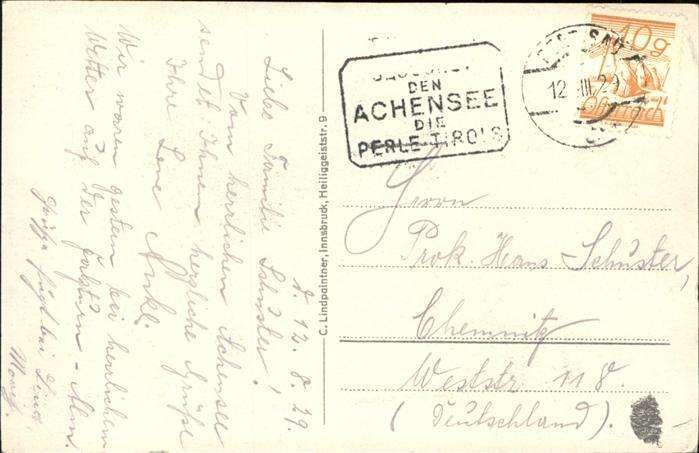 A. 12.8.29.
Liebe Familie Schuster!
Vom herrlichen Achensee
sendet Ihnen herzliche Grüße
Ihre Lene
Wir waren gestern bei herrlichem
Wetter auf der Alm.
C. Lindpaintner, Innsbruck, Heiliggeiststr. 9
DEN
ACHENSEE
DIE
PERLE TIROLS
12 VIII 29
10g
Herrn
Prok. Hans Schuster,
Chemnitz
Weststr. 118.
(Deutschland).